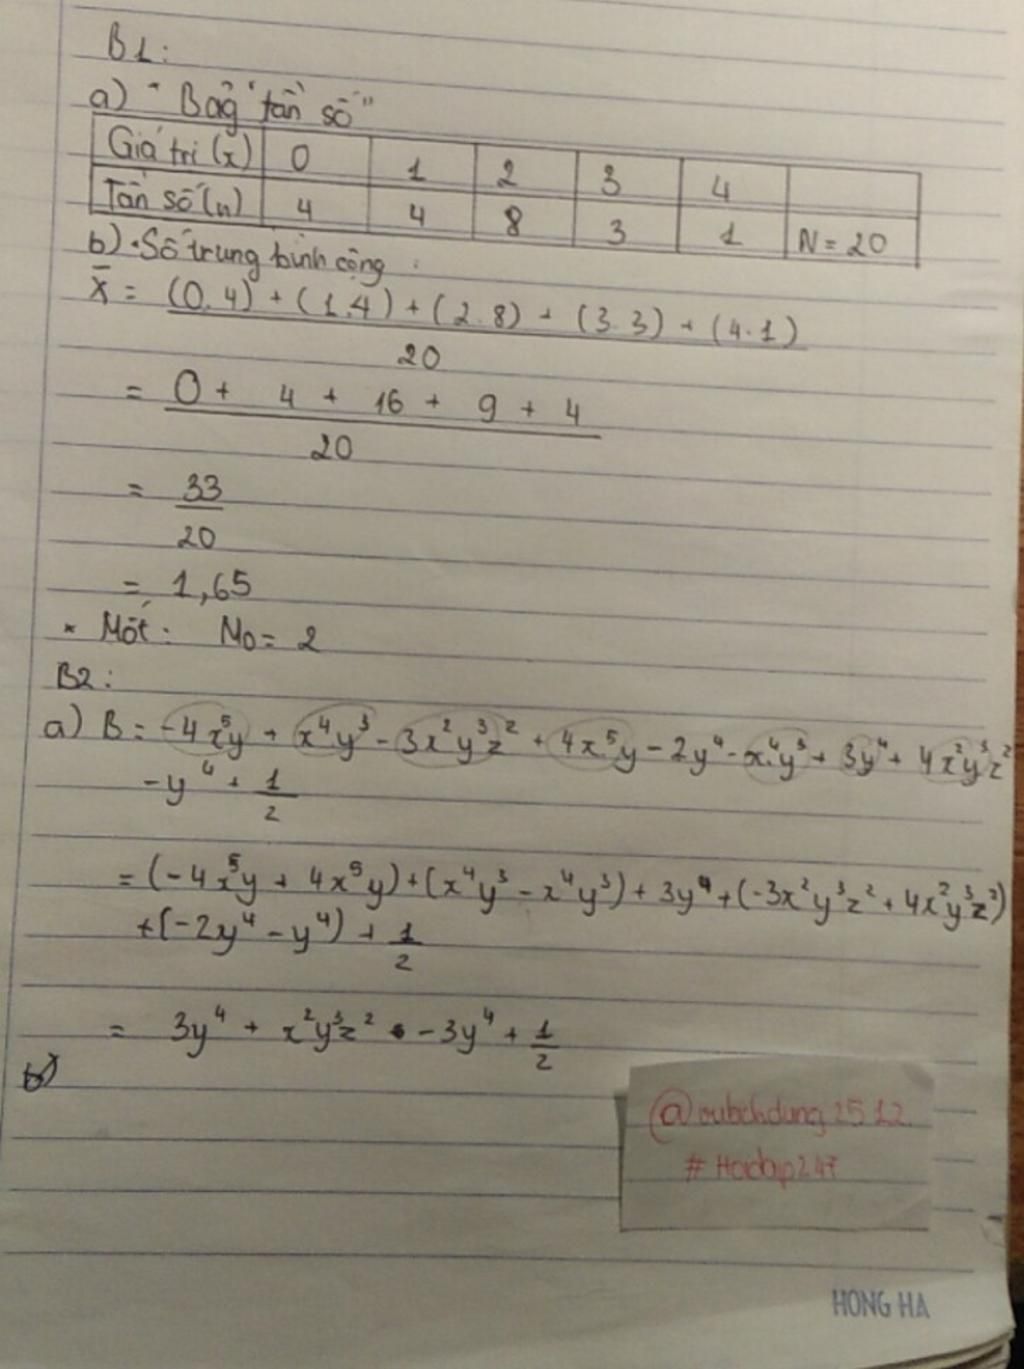 B1:
a) "Bảg "tần số"
Giá trị (x) 0 1 2 3 4
Tần số (n) 4 4 8 3 1 N = 20
b) • Số trung bình cộng :
X̄ = (0.4) + (1.4) + (2.8) + (3.3) + (4.1)
20
= 0 + 4 + 16 + 9 + 4
20
= 33
20
= 1,65
* Mốt: M₀ = 2
B2:
a) B = -4x⁵y + x⁴y³ - 3x²y³z² + 4x⁵y - 2y⁴ - x⁴y³ + 3y⁴ + 4x²y³z²
- y⁴ + 1/2
= (-4x⁵y + 4x⁵y) + (x⁴y³ - x⁴y³) + 3y⁴ + (-3x²y³z² + 4x²y³z²)
+ (-2y⁴ - y⁴) + 1/2
= 3y⁴ + x²y³z² - 3y⁴ + 1/2
b)
HONG HA